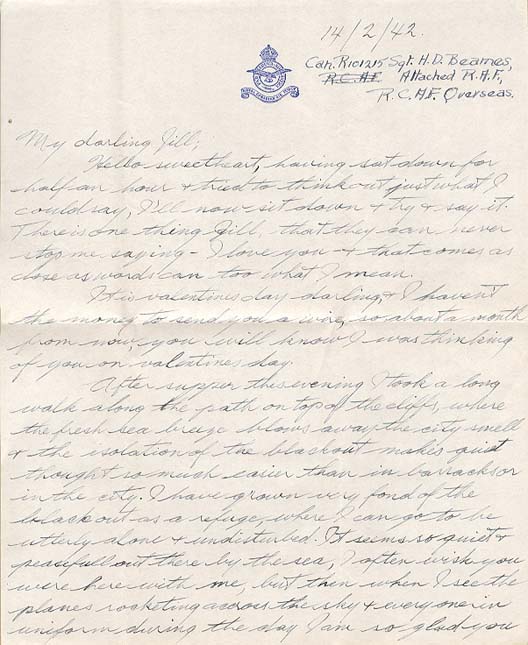 14/2/42.
Can. R101215 Sgt. H.D. Beames,
R.C.A.F. Attached R.A.F,
R.C.A.F. Overseas.
My darling Jill;
Hello sweetheart, having sat down for
half an hour & tried to think out just what I
could say, I'll now sit down & try & say it.
There is one thing Jill, that they can never
stop me saying - I love you & that comes as
close as words can too what I mean.
It is valentines day darling & I haven't
the money to send you a wire, so about a month
from now, you will know I was thinking
of you on valentines day.
After supper this evening I took a long
walk along the path on top of the cliffs, where
the fresh sea breeze blows away the city smell
& the isolation of the blackout makes quiet
thought so much easier than in barracks or
in the city. I have grown very fond of the
blackout as a refuge, where I can go to be
utterly alone & undisturbed. It seems so quiet &
peacefull out there by the sea, I often wish you
were here with me, but then when I see the
planes rocketing accross the sky & everyone in
uniform during the day I am so glad you